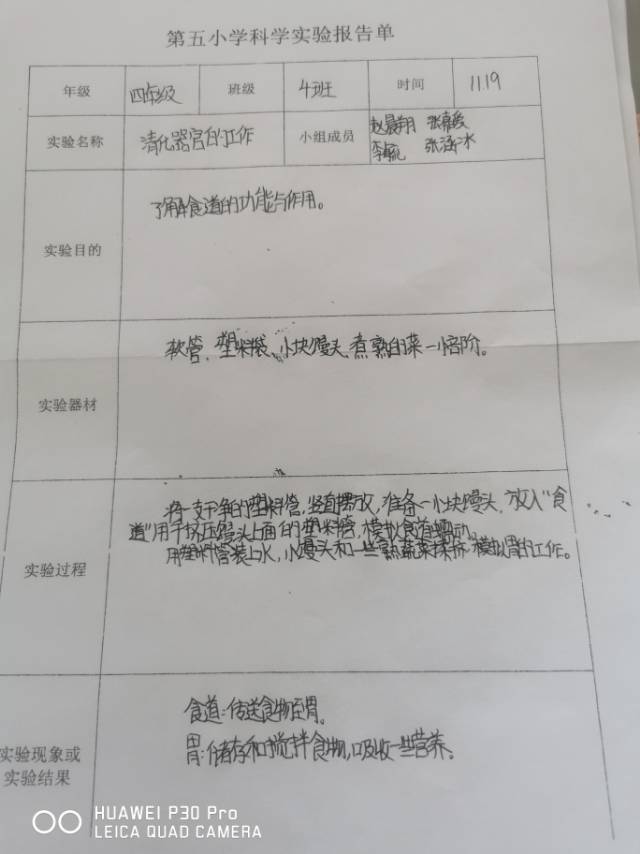 第五小学科学实验报告单
年级 四年级 班级 4班 时间 11.19
实验名称 消化器官的工作 小组成员 赵晨翔 张
李 张涵冰
实验目的
了解食道的功能与作用。
实验器材
软管、塑料袋、小块馒头、煮熟的菜一小部阶。
实验过程
将一支干净的塑料管,竖直摆放,准备一小块馒头,放入“食
道”用手挤压馒头上面的塑料管,模拟食道蠕动。
用塑料管装上水,小馒头和一些熟蔬菜揉搓,模拟胃的工作。
实验现象或
实验结果
食道:传送食物至胃。
胃:储存和搅拌食物,吸收一些营养。
HUAWEI P30 Pro
LEICA QUAD CAMERA